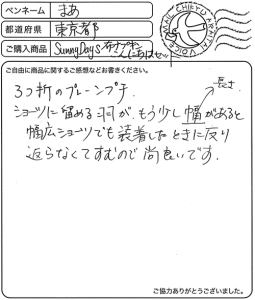 ペンネーム まあ
都道府県 東京都
ご購入商品 SunnyDays 布ナプキン こんにちはセット
MAIL CHIKYU ARAHI VOICE
ご自由に商品に関するご感想などお書きください。
3つ折のプレーンプチ.
長さ.
ショーツに留める羽が、もう少し幅があると
幅広ショーツでも装着したときに反り
返らなくてすむので尚良いです.
ご協力ありがとうございました。